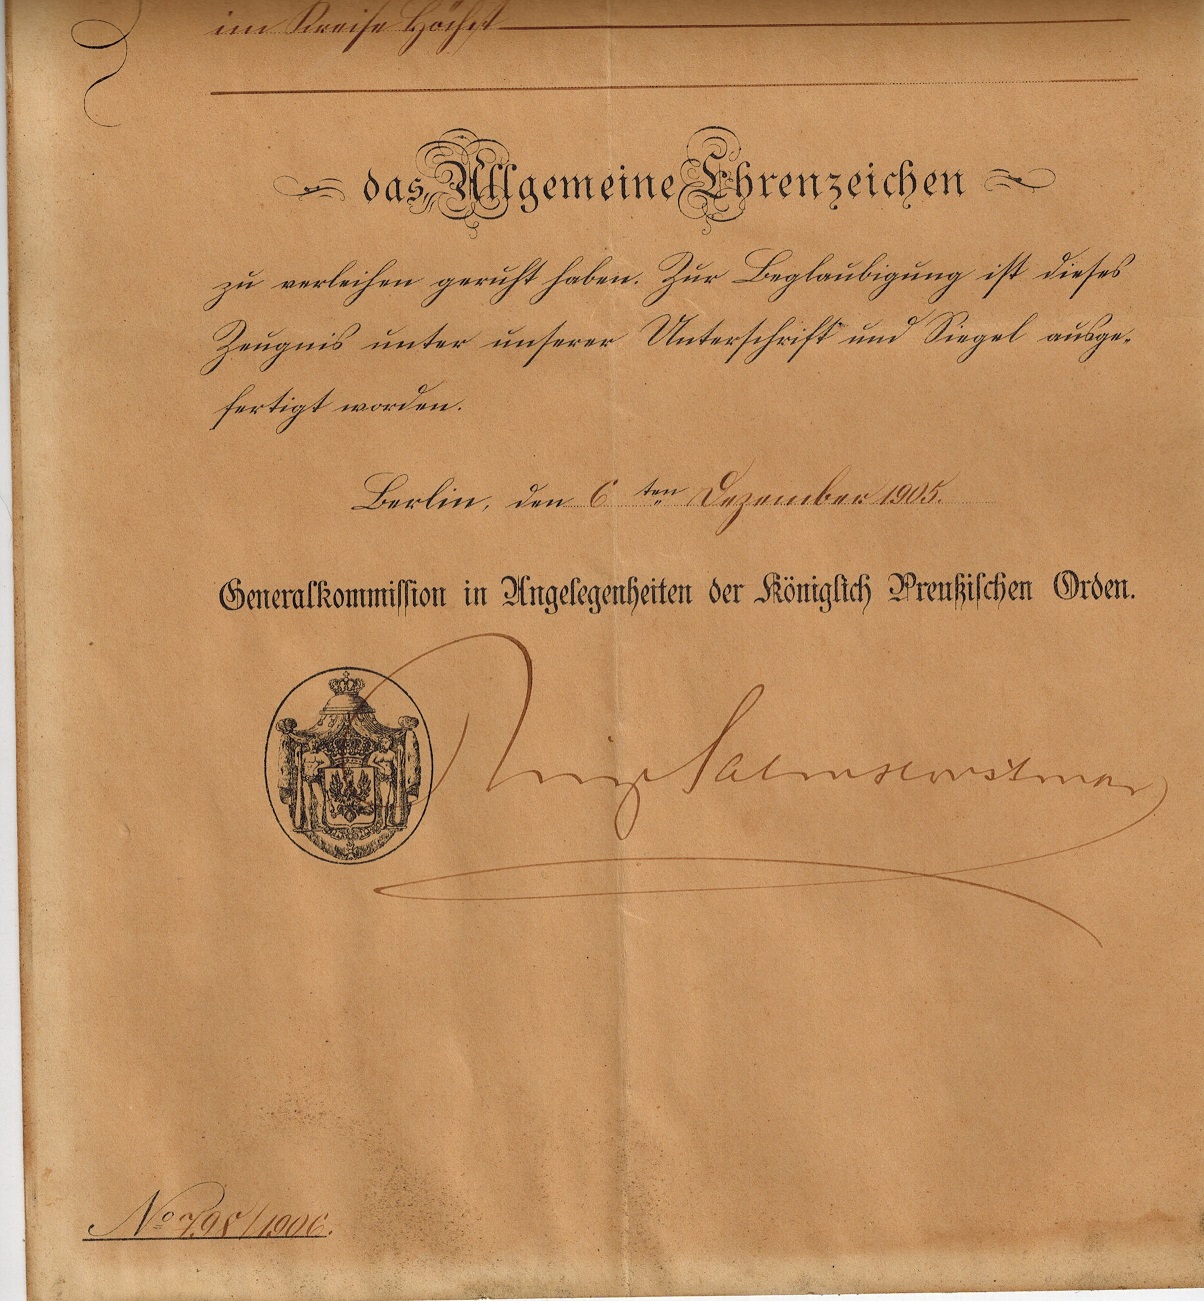 im Kreise Höchst
das Allgemeine Ehrenzeichen
zu verleihen geruht haben. Zur Beglaubigung ist dieses
Zeugnis unter unserer Unterschrift und Siegel ausge-
fertigt worden.
Berlin, den 6ten Dezember 1905.
Generalkommission in Angelegenheiten der Königlich Preußischen Orden.
Salmhorstmar
No 798/1906.